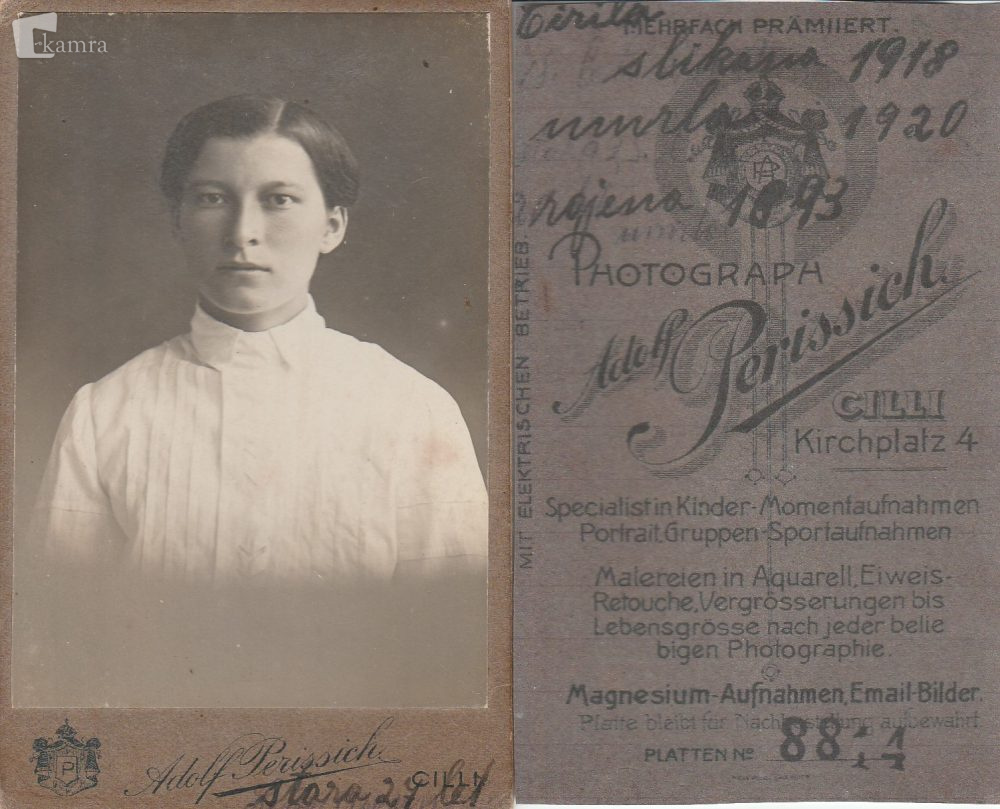 kamra
Adolf Perissich
CILLI
P
stara 27 let
Cirila
MEHRFACH PRÄMIIERT.
slikana 1918
umrla 1920
rojena 1893
MIT ELEKTRISCHEN BETRIEB.
PHOTOGRAPH
Adolf Perissich
CILLI
Kirchplatz 4
Specialist in Kinder-Momentaufnahmen
Portrait, Gruppen-Sportaufnahmen
Malereien in Aquarell, Eiweis-
Retouche, Vergrösserungen bis
Lebensgrösse nach jeder belie
bigen Photographie.
Magnesium-Aufnahmen, Email-Bilder.
Platte bleibt für Nachbestellung aufbewahrt.
PLATTEN No